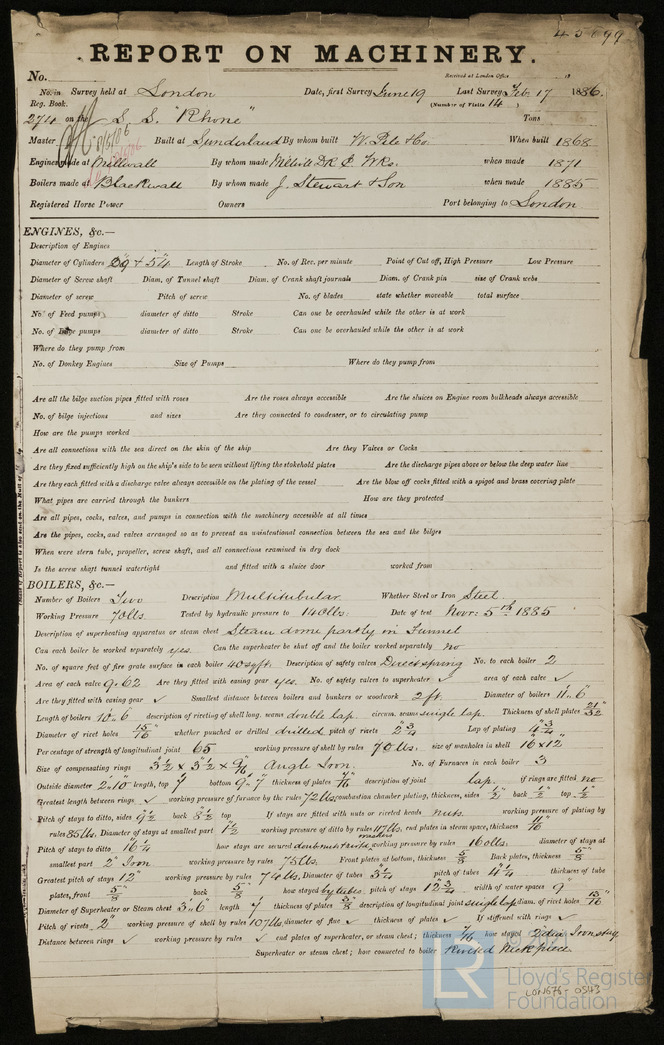 45099
REPORT ON MACHINERY.
No. Received at London Office 18
No. in Survey held at London Date, first Survey June 19 Last Survey Feb 17 1886.
Reg. Book. (Number of Visits 14)
274 on the S.S. "Rhone" Tons
Master Built at Sunderland By whom built W. Pile & Co. When built 1868
Engines made at Millwall By whom made when made 1871
Boilers made at Blackwall By whom made J. Stewart & Son when made 1885
Registered Horse Power Owners Port belonging to London
ENGINES, &c.—
Description of Engines
Diameter of Cylinders 29" & 54" Length of Stroke No. of Rev. per minute Point of Cut off, High Pressure Low Pressure
Diameter of Screw shaft Diam. of Tunnel shaft Diam. of Crank shaft journals Diam. of Crank pin size of Crank webs
Diameter of screw Pitch of screw No. of blades state whether moveable total surface
No. of Feed pumps diameter of ditto Stroke Can one be overhauled while the other is at work
No. of Bilge pumps diameter of ditto Stroke Can one be overhauled while the other is at work
Where do they pump from
No. of Donkey Engines Size of Pumps Where do they pump from
Are all the bilge suction pipes fitted with roses Are the roses always accessible Are the sluices on Engine room bulkheads always accessible
No. of bilge injections and sizes Are they connected to condenser, or to circulating pump
How are the pumps worked
Are all connections with the sea direct on the skin of the ship Are they Valves or Cocks
Are they fixed sufficiently high on the ship's side to be seen without lifting the stokehold plates Are the discharge pipes above or below the deep water line
Are they each fitted with a discharge valve always accessible on the plating of the vessel Are the blow off cocks fitted with a spigot and brass covering plate
What pipes are carried through the bunkers How are they protected
Are all pipes, cocks, valves, and pumps in connection with the machinery accessible at all times
Are the pipes, cocks, and valves arranged so as to prevent an unintentional connection between the sea and the bilges
When were stern tube, propeller, screw shaft, and all connections examined in dry dock
Is the screw shaft tunnel watertight and fitted with a sluice door worked from
BOILERS, &c.—
Number of Boilers Two Description Multitubular Whether Steel or Iron Steel
Working Pressure 70lbs. Tested by hydraulic pressure to 140lbs. Date of test Novr: 5th 1885
Description of superheating apparatus or steam chest Steam dome partly in Funnel
Can each boiler be worked separately yes Can the superheater be shut off and the boiler worked separately no
No. of square feet of fire grate surface in each boiler 40 sq ft. Description of safety valves Direct spring No. to each boiler 2
Area of each valve 9.62 Are they fitted with easing gear yes No. of safety valves to superheater ✓ area of each valve ✓
Are they fitted with easing gear ✓ Smallest distance between boilers and bunkers or woodwork 2 ft. Diameter of boilers 11' 6"
Length of boilers 10' 6" description of riveting of shell long. seams double lap circum. seams single lap. Thickness of shell plates 21/32
Diameter of rivet holes 15/16" whether punched or drilled drilled pitch of rivets 2 3/4 Lap of plating 4 3/4
Percentage of strength of longitudinal joint 65 working pressure of shell by rules 70 lbs. size of manholes in shell 16" x 12"
Size of compensating rings 3 1/2 x 3 1/2 x 9/16 Angle Iron. No. of Furnaces in each boiler 3
Outside diameter 2' 10" length, top 7' bottom 9' 7" thickness of plates 7/16 description of joint lap. if rings are fitted no
Greatest length between rings ✓ working pressure of furnace by the rules 72 lbs. combustion chamber plating, thickness, sides 1/2" back 1/2" top 1/2"
Pitch of stays to ditto, sides 9 1/2 back 8 1/2 top If stays are fitted with nuts or riveted heads nuts. working pressure of plating by
rules 85 lbs. Diameter of stays at smallest part 1 1/2 working pressure of ditto by rules 117 lbs. end plates in steam space, thickness 11/16
Pitch of stays to ditto 16 1/4 how stays are secured double nuts & washers working pressure by rules 160 lbs. diameter of stays at
smallest part 2" Iron working pressure by rules 75 lbs. Front plates at bottom, thickness 5/8 Back plates, thickness 5/8
Greatest pitch of stays 12" working pressure by rules 74 lbs. Diameter of tubes 3 1/4 pitch of tubes 4 1/4 thickness of tube
plates, front 5/8 back 5/8 how stayed by tubes pitch of stays 12 3/4 width of water spaces 9"
Diameter of Superheater or Steam chest 3' 6" length 7' thickness of plates 3/8 description of longitudinal joint single lap diam. of rivet holes 13/16
Pitch of rivets 2" working pressure of shell by rules 107 lbs. diameter of flue ✓ thickness of plates ✓ If stiffened with rings ✓
Distance between rings ✓ working pressure by rules ✓ end plates of superheater, or steam chest; thickness 7/16 how stayed Iron stay
Superheater or steam chest; how connected to boiler Riveted Neck piece
LR
Lloyd's Register
Foundation
LON676-0543